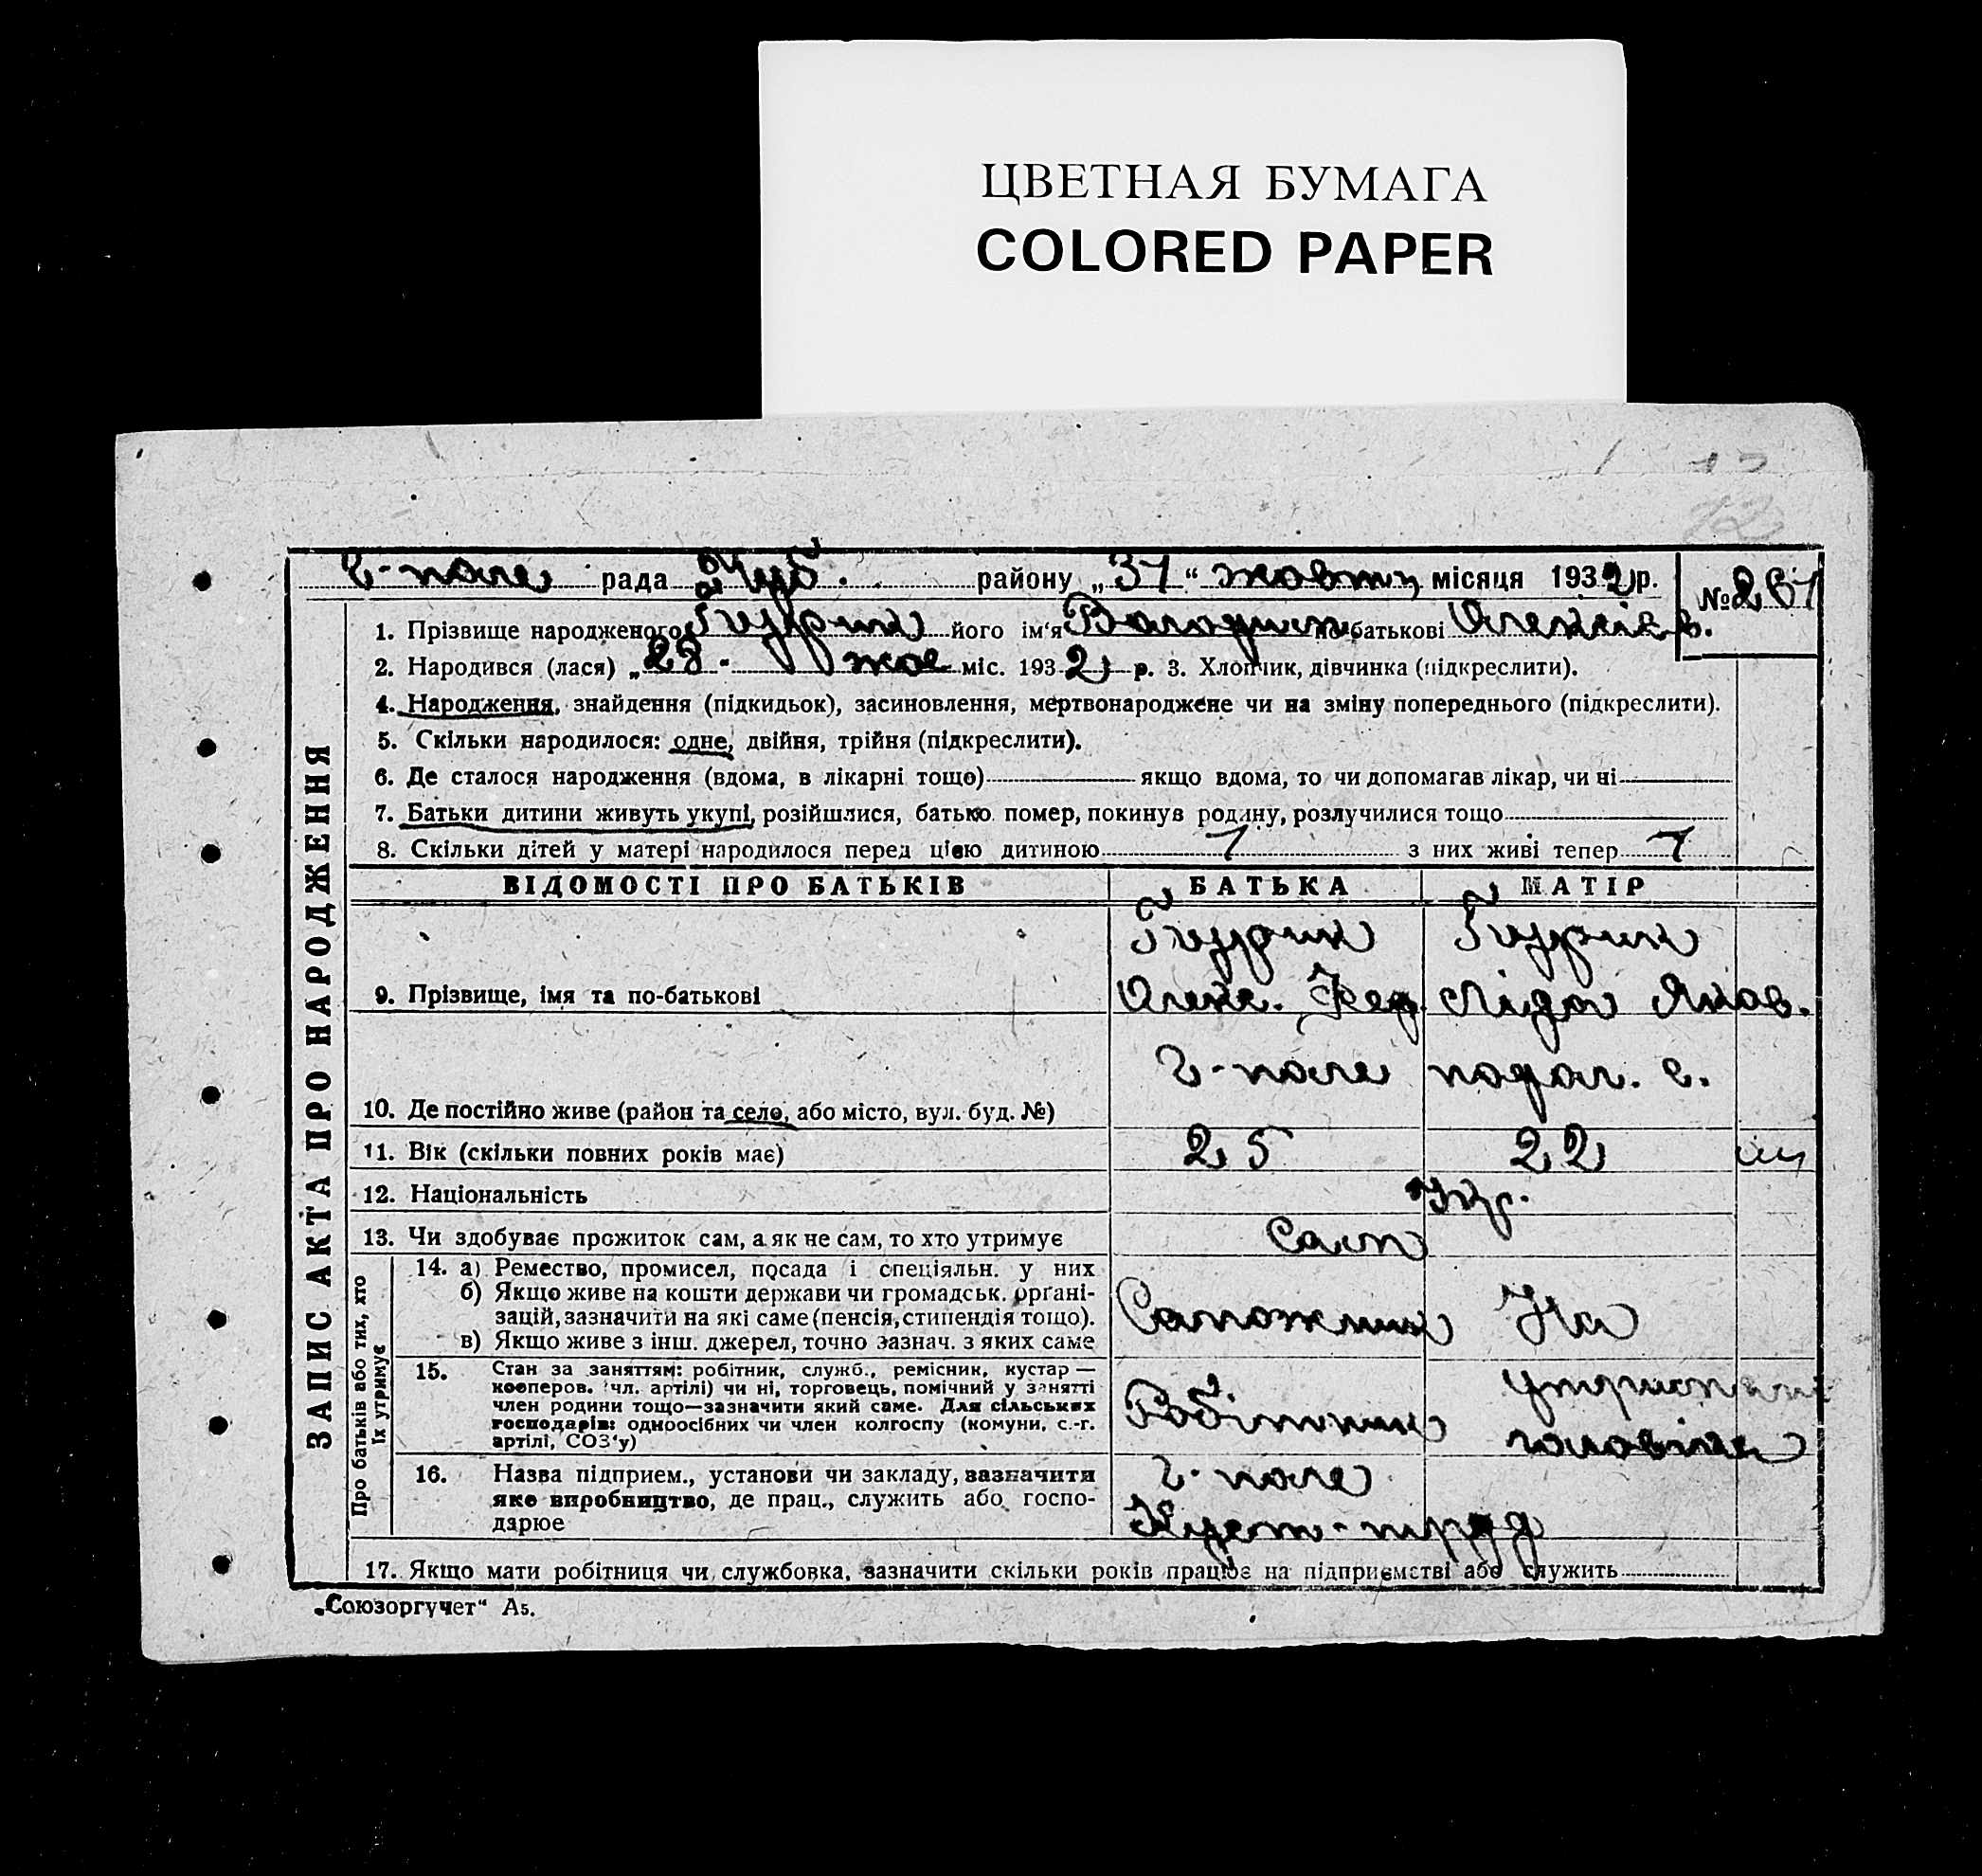 ЦВЕТНАЯ БУМАГА
COLORED PAPER
Г-поле рада району „31“ жовтня місяця 1932 р. №261
1. Прізвище народженого його ім‘я Володим по батькові Олексіїв.
2. Народився (лася) „28 - жов міс. 1932 р. 3. Хлопчик, дівчинка (підкреслити).
4. Народження, знайдення (підкидьок), засиновлення, мертвонароджене чи на зміну попереднього (підкреслити).
5. Скільки народилося: одне, двійня, трійня (підкреслити).
6. Де сталося народження (вдома, в лікарні тощо) якщо вдома, то чи допомагав лікар, чи ні
7. Батьки дитини живуть укупі, розійшлися, батько помер, покинув родину, розлучилися тощо
8. Скільки дітей у матері народилося перед цією дитиною 1 з них живі тепер 1
ЗАПИС АКТА ПРО НАРОДЖЕННЯ
ВІДОМОСТІ ПРО БАТЬКІВ БАТЬКА МАТІР
9. Прізвище, імя та по-батькові Олекс. Фед. Лідія Яков.
Г-поле
10. Де постійно живе (район та село, або місто, вул. буд. №)
11. Вік (скільки повних років має) 25 22
12. Національність Укр.
13. Чи здобуває прожиток сам, а як не сам, то хто утримує Сам
Про батьків або тих, хто їх утримує
14. а) Ремество, промисел, посада і спеціяльн. у них
б) Якщо живе на кошти держави чи громадськ. орґані-
зацій, зазначити на які саме (пенсія, стипендія тощо). Сапожник На
в) Якщо живе з інш. джерел, точно зазнач. з яких саме
15. Стан за заняттям: робітник, служб., ремісник, кустар —
кооперов. (чл. артілі) чи ні, торговець, помічний у занятті
член родини тощо—зазначити який саме. Для сільських
господарів: одноосібних чи член колгоспу (комуни, с.-г. Робітник утриманні
артілі, СОЗ‘у) чоловіка
16. Назва підприєм., установи чи закладу, зазначити Г-поле
яке виробництво, де прац., служить або госпо-
дарює Куст-труд
17. Якщо мати робітниця чи службовка, зазначити скільки років працює на підприємстві або служить
„Союзоргучет“ А5.